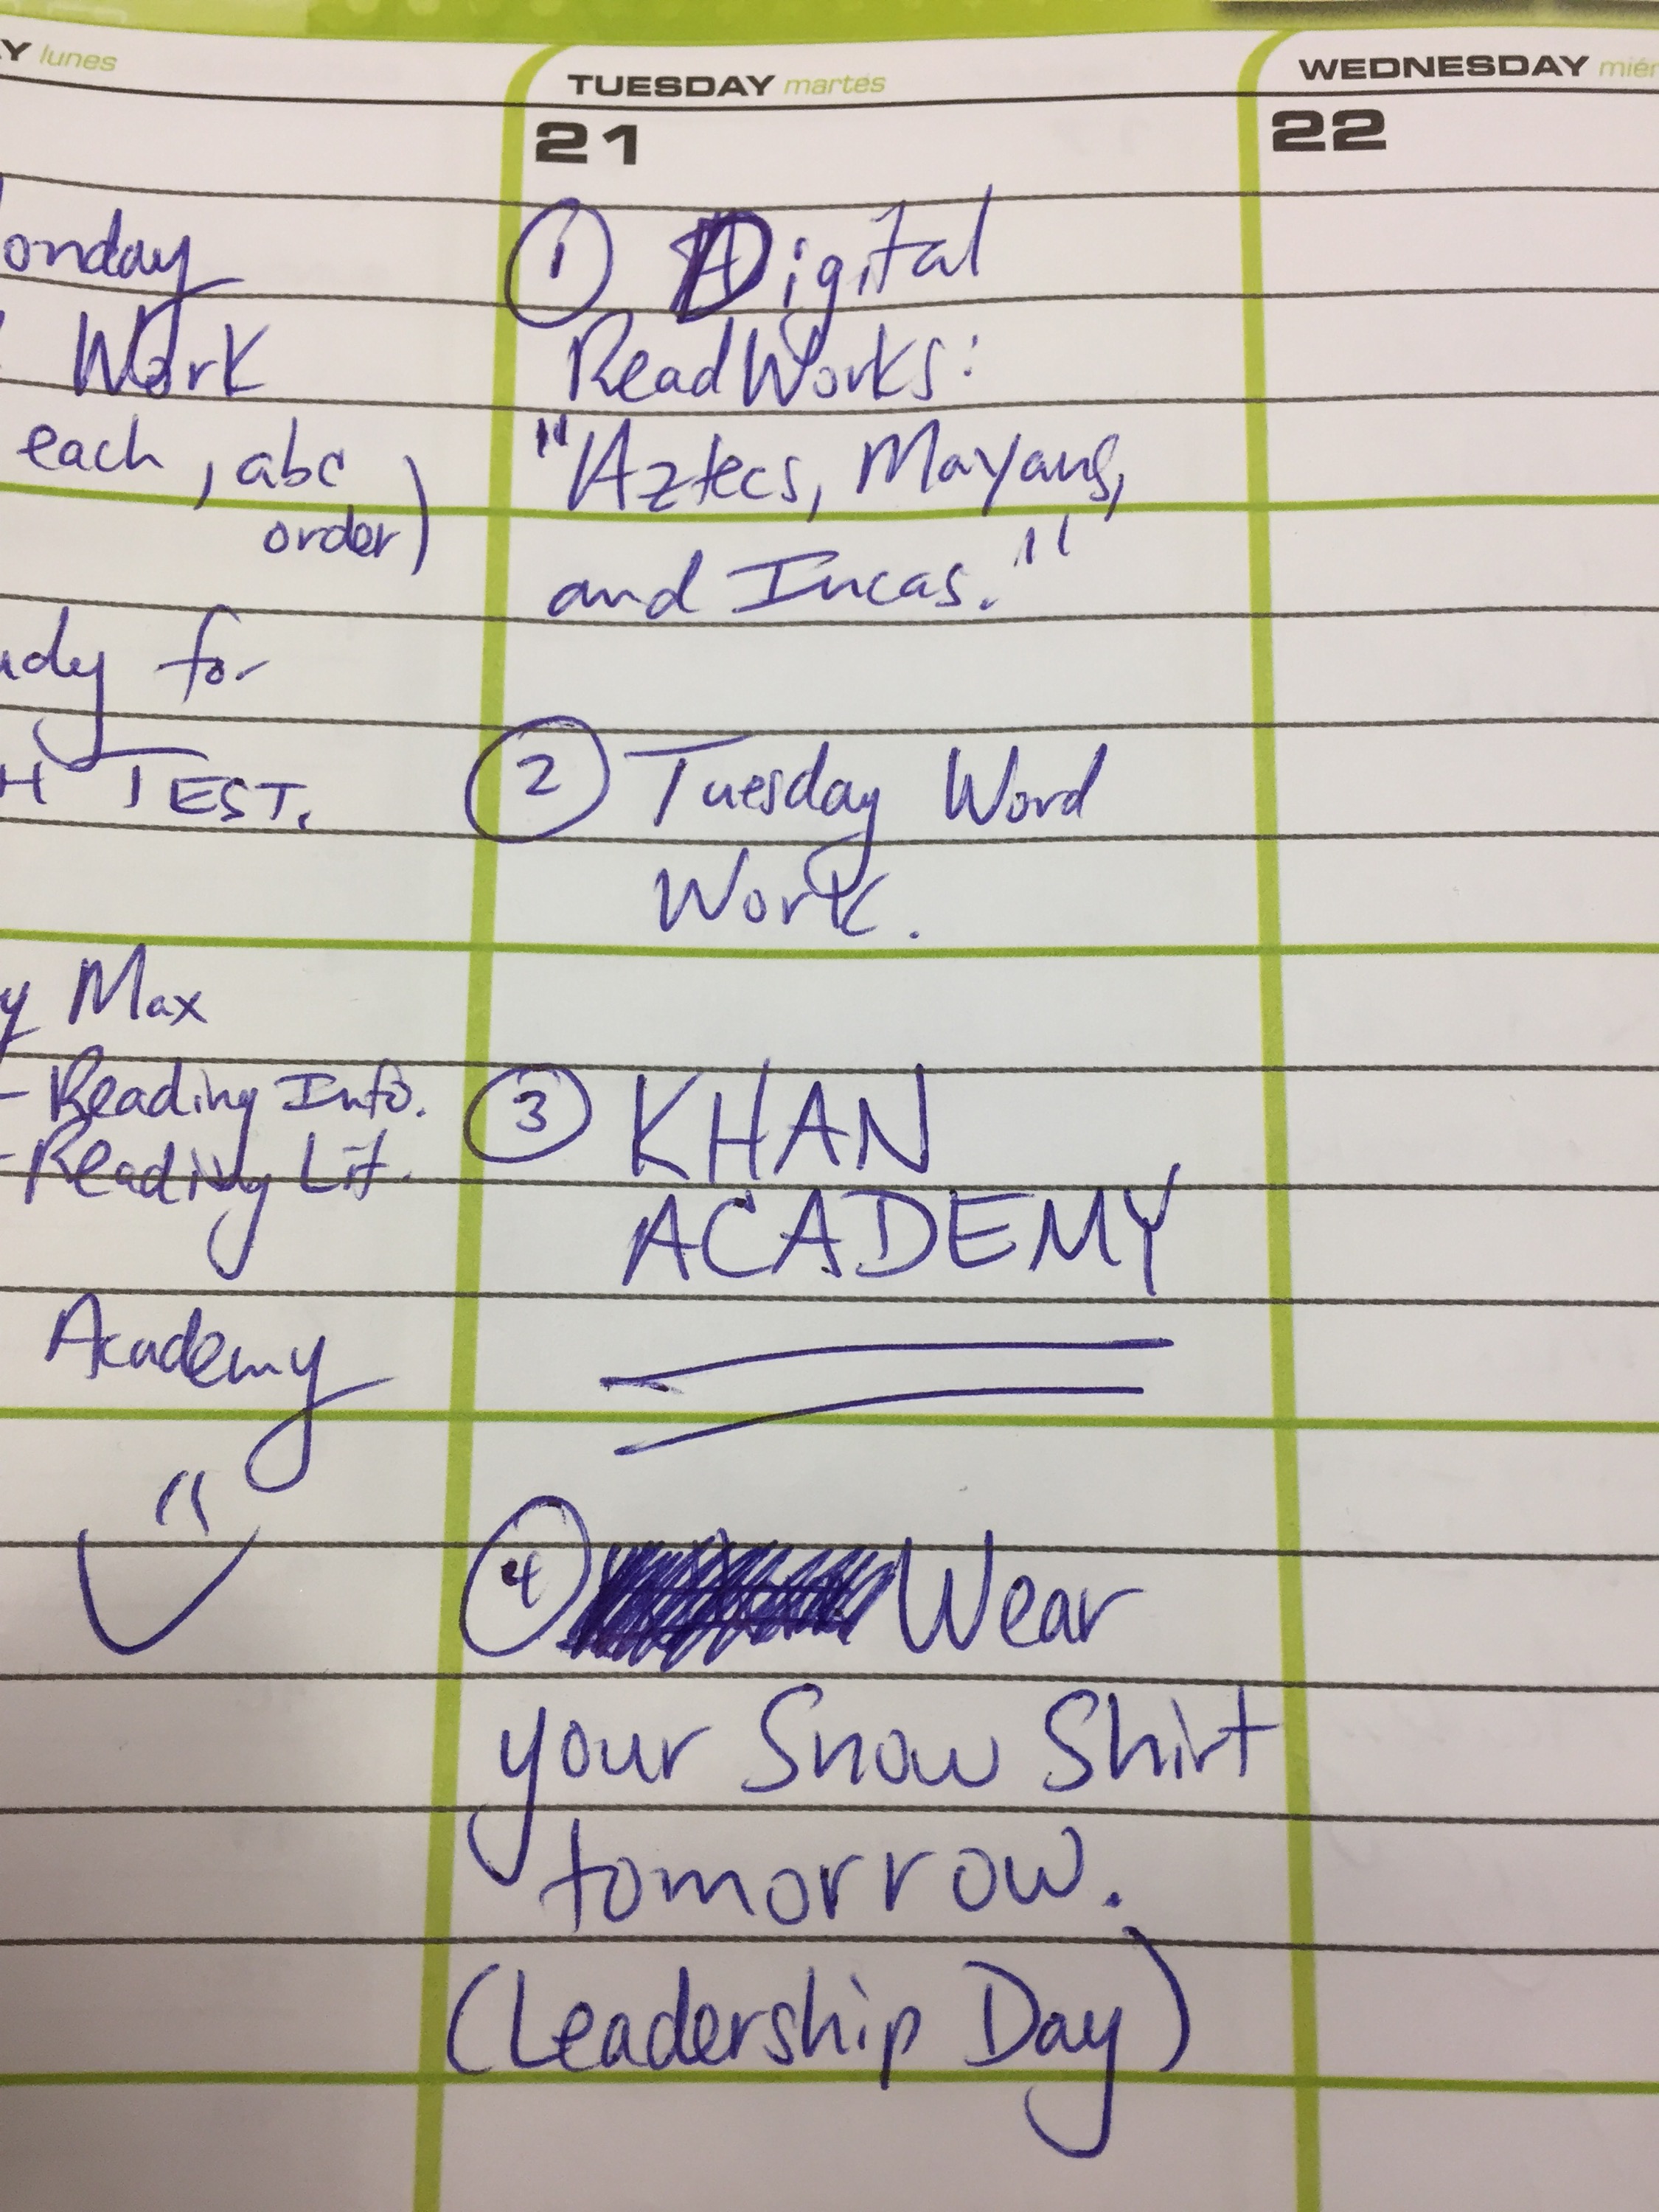 Y lunes
onday
Work
each, abc
order)
udy for
H TEST.
y Max
- Reading Info.
- Reading Lit.
Academy
TUESDAY martes
21
1 Digital
ReadWorks:
"Aztecs, Mayans,
and Incas."
2 Tuesday Word
Work.
3 KHAN
ACADEMY
4 Wear
your Snow Shirt
tomorrow.
(Leadership Day)
WEDNESDAY miér
22